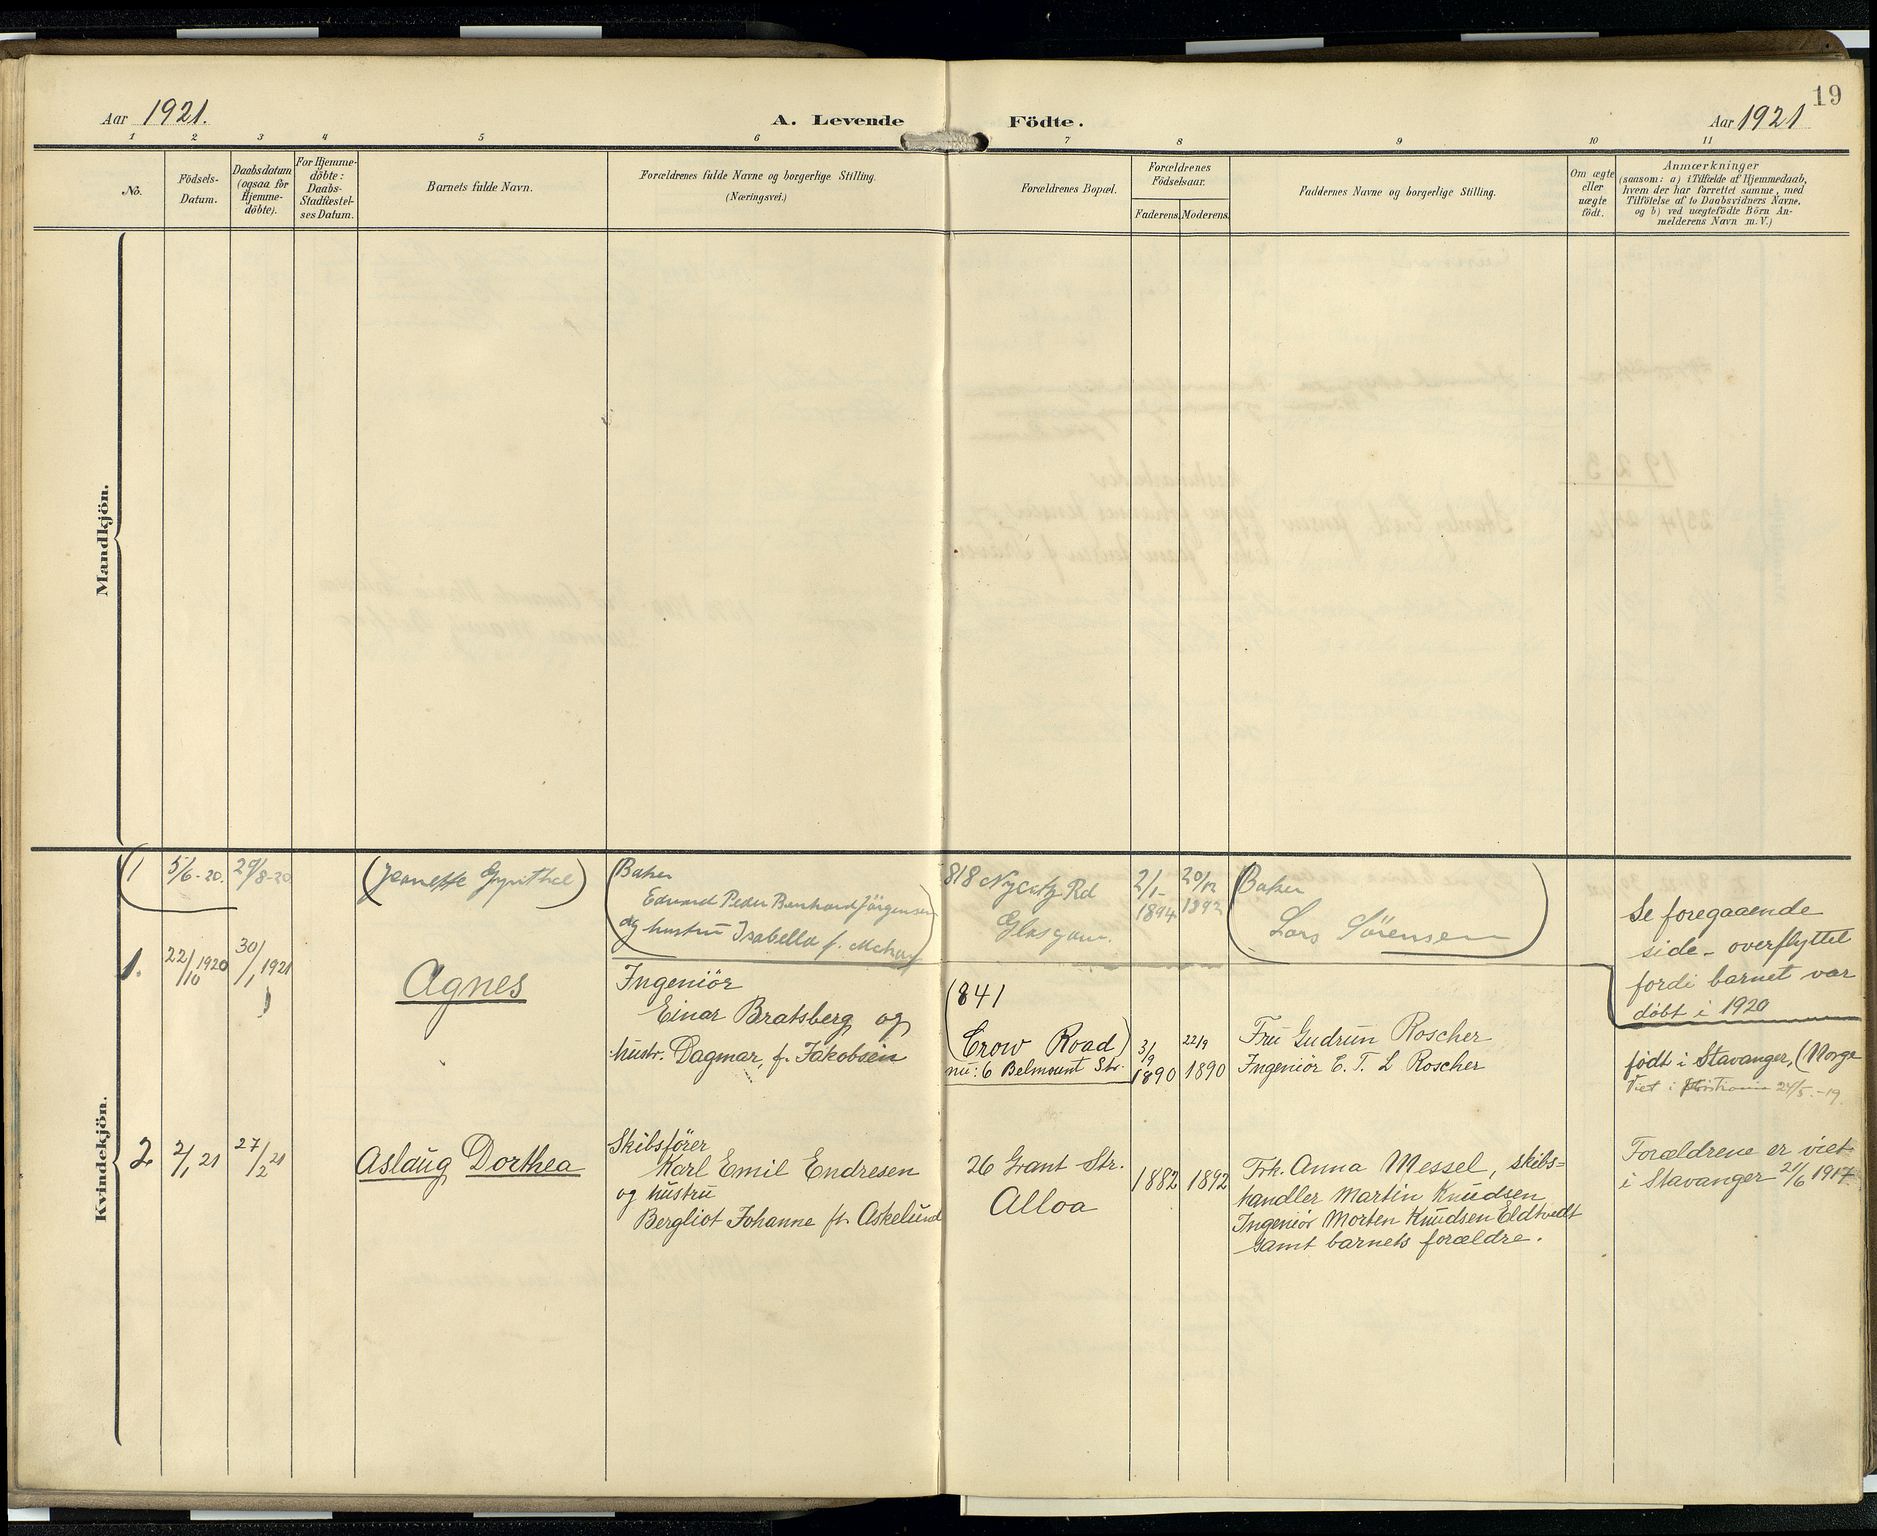 19
Aar 1921.
A. Levende Födte.
Aar 1921
1 2 3 4 5 6 7 8 9 10 11
No.
Födsels-
Datum.
Daabsdatum
(ogsaa for
Hjemme-
döbte).
For Hjemme-
döbte:
Daabs-
Stadfæstel-
ses Datum.
Barnets fulde Navn.
Forældrenes fulde Navne og borgerlige Stilling.
(Næringsvei.)
Forældrenes Bopæl.
Forældrenes
Födselsaar.
Faderens.
Moderens.
Faddernes Navne og borgerlige Stilling.
Om ægte
eller
uægte
födt.
Anmærkninger
(saasom: a) i Tilfælde af Hjemmedaab,
hvem der har forrettet samme, med
Tilföielse af to Daabsvidners Navne,
og b) ved uægtefödte Börn An-
melderens Navn m. V.)
Mandkjön.
Kvindekjön.
(1
5/6-20.
29/8-20
(Jeanette Gynthel)
(Baker
Edvard Peder Bernhard Jörgensen
og hustru Isabella f.
818
Rd
Glasgow.
2/1-
1894
20/12
1892
(Baker
Lars Sörensen)
Se foregaaende
side - overflyttet
fordi barnet var
døbt i 1920
1.
22/10 1920
30/1 1921
Agnes
Ingeniör
Einar Bratsberg og
hustr. Dagmar, f. Jakobsen
(841
Crow Road)
nu: 6 Belmount Str.
3/9
1890
22/9
1890
Fru Gudrun Roscher
Ingeniör E. T. L Roscher
født i Stavanger, (Norge
Viet i Kristiania 24/5.-19.
2
2/1 21
27/2 21
Aslaug Dorthea
Skibsfører
Karl Emil Endresen
og hustru
Bergliot Johanne f. Askelund
26 Grant Str.
Alloa
1882
1892
Frk. Anna Messel, skibs-
handler Martin Knudsen
Ingeniör Morten Knudsen Eldtvedt
samt barnets forældre.
Forældrene er viet
i Stavanger 21/6 1917